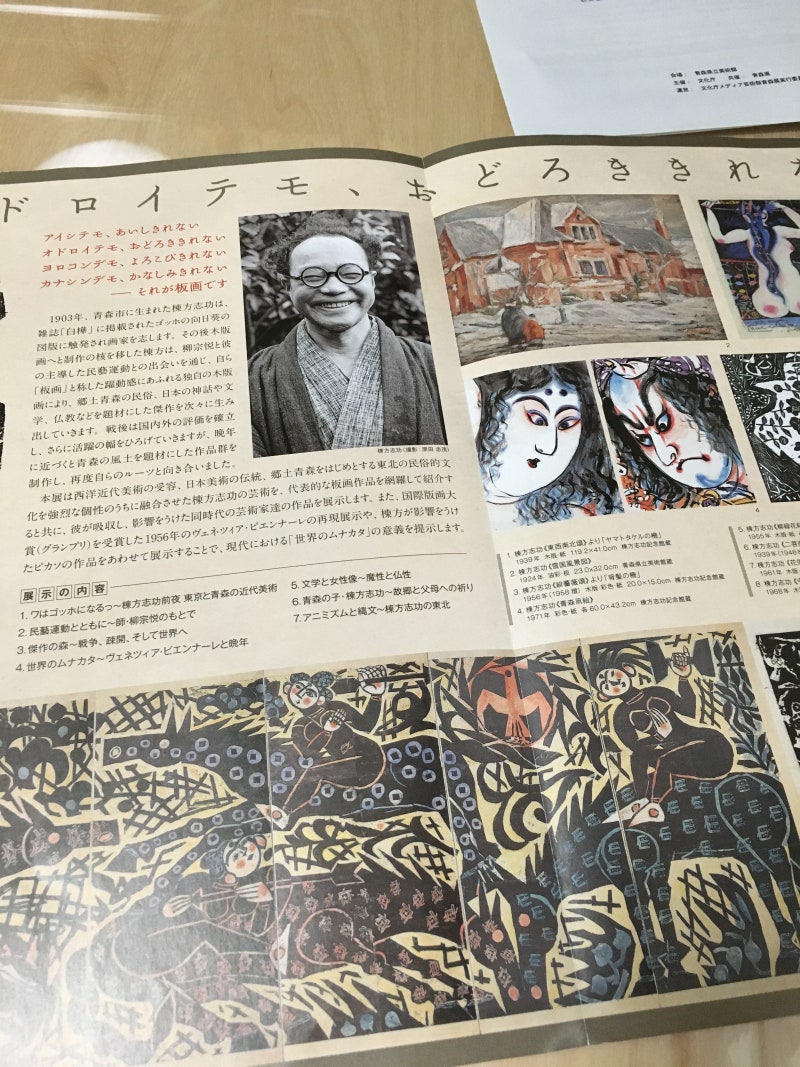 会場： 青森県立美術館
主催： 文化庁　共催： 青森県
運営： 文化庁メディア芸術祭青森展実行委員
ドロイテモ、おどろききれな
アイシテモ、あいしきれない
オドロイテモ、おどろききれない
ヨロコンデモ、よろこびきれない
カナシンデモ、かなしみきれない
── それが板画です
1903年、青森市に生まれた棟方志功は、
雑誌「白樺」に掲載されたゴッホの向日葵の
図版に触発され画家を志します。その後木版
画へと制作の核を移した棟方は、柳宗悦と彼
の主導した民藝運動との出会いを通じ、自ら
「板画」と称した躍動感にあふれる独自の木版
画により、郷土青森の民俗、日本の神話や文
学、仏教などを題材にした傑作を次々に生み
出していきます。戦後は国内外の評価を確立
し、さらに活躍の幅をひろげていきますが、晩年
に近づくと青森の風土を題材にした作品群を
制作し、再度自らのルーツと向き合いました。
本展は西洋近代美術の受容、日本美術の伝統、郷土青森をはじめとする東北の民俗的文
化を強烈な個性のうちに融合させた棟方志功の芸術を、代表的な板画作品を網羅して紹介す
ると共に、彼が吸収し、影響をうけた同時代の芸術家達の作品を展示します。また、国際版画大
賞(グランプリ)を受賞した1956年のヴェネツィア・ビエンナーレの再現展示や、棟方が影響をうけ
たピカソの作品をあわせて展示することで、現代における「世界のムナカタ」の意義を提示します。
棟方志功(撮影：原田 忠茂)
展示の内容
1. ワはゴッホになるっ～棟方志功前夜 東京と青森の近代美術
2. 民藝運動とともに～師・柳宗悦のもとで
3. 傑作の森～戦争、疎開、そして世界へ
4. 世界のムナカタ～ヴェネツィア・ビエンナーレと晩年
5. 文学と女性像～魔性と仏性
6. 青森の子・棟方志功～故郷と父母への祈り
7. アニミズムと縄文～棟方志功の東北
2
4
1. 棟方志功《東西南北頌》より「ヤマトタケルの柵」
1939年 木版・紙 119.2×41.0cm 棟方志功記念館蔵
2. 棟方志功《雪国風景図》
1924年 油彩・板 23.0×32.0cm 青森県立美術館蔵
3. 棟方志功《鍵板画柵》より「肩鬢の柵」
1956年(1958摺) 木版・彩色・紙 20.0×15.0cm 棟方志功記念館蔵
4. 棟方志功《青森凧絵》
1971年 彩色・紙 各60.0×43.2cm 棟方志功記念館蔵
5. 棟方志功《柳緑花
1955年 木版・紙
6. 棟方志功《二菩
1939年(1948
7. 棟方志功《花
1961年 木版
8. 棟方志功《
1968年 木